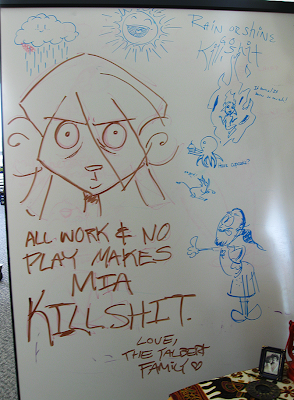 RAIN OR SHINE
Killshit
MORE CUPCAKE?
ALL WORK & NO
PLAY MAKES
MIA
KILLSHIT.
LOVE,
THE TALBERT
FAMILY